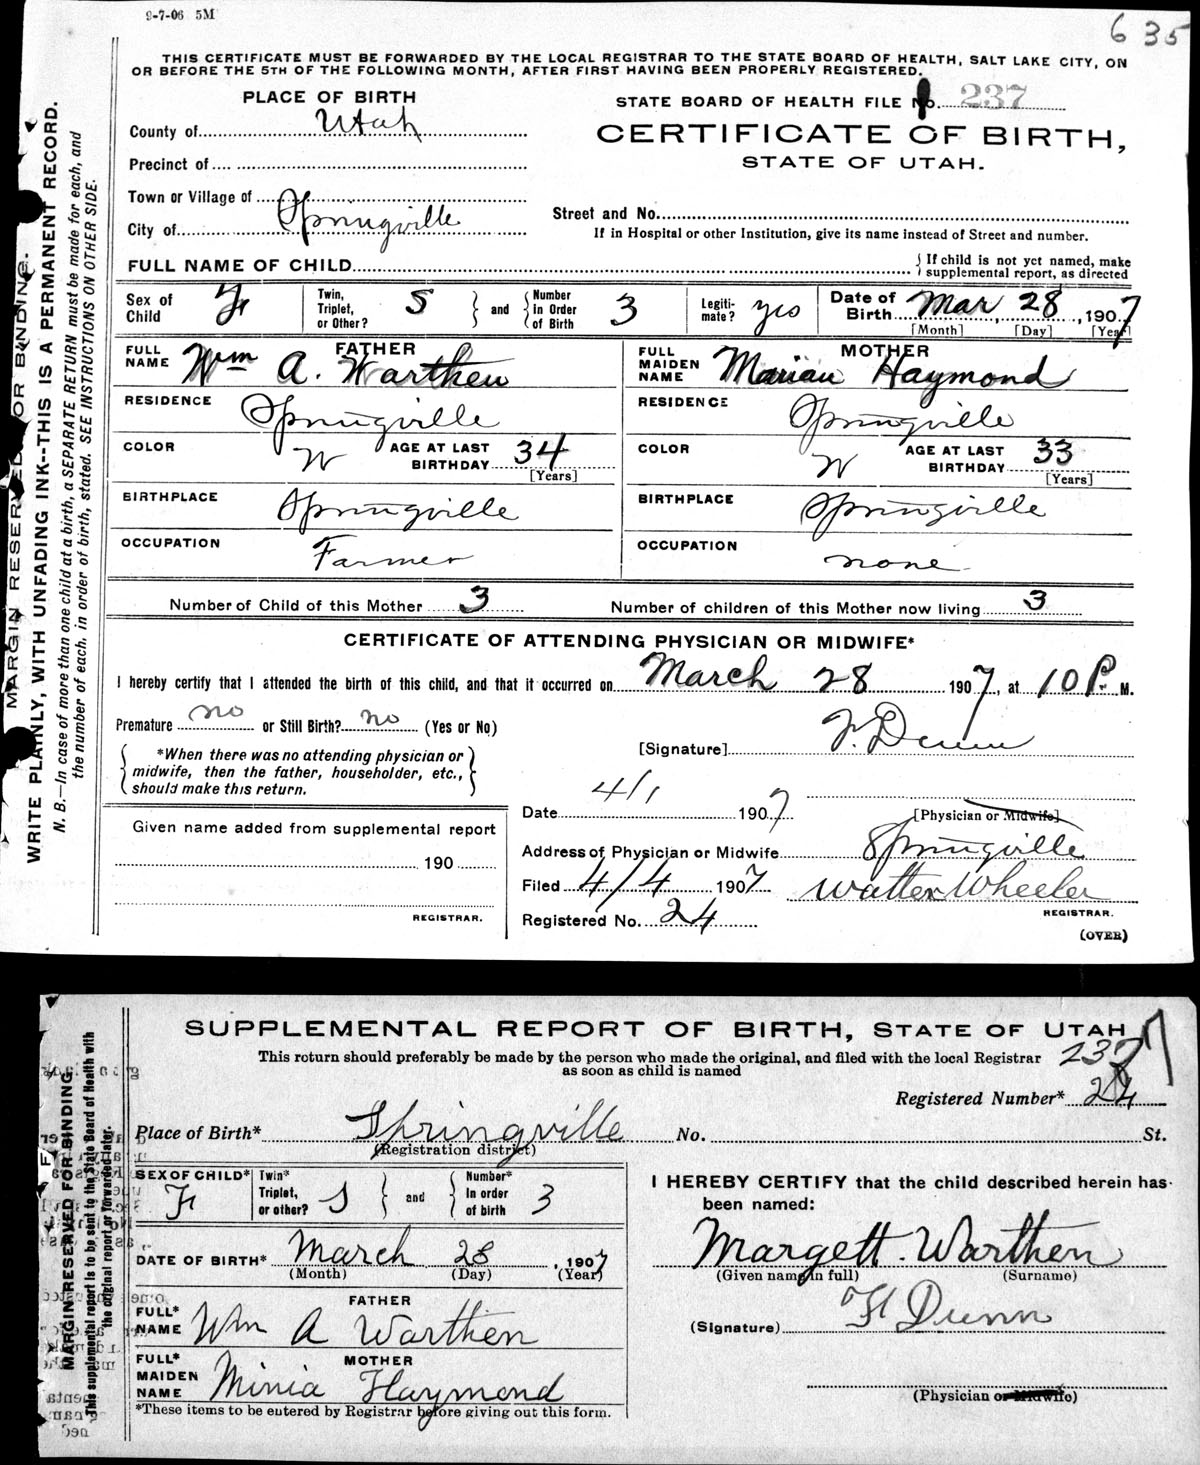 9-7-06 5M
635
THIS CERTIFICATE MUST BE FORWARDED BY THE LOCAL REGISTRAR TO THE STATE BOARD OF HEALTH, SALT LAKE CITY, ON
OR BEFORE THE 5TH OF THE FOLLOWING MONTH, AFTER FIRST HAVING BEEN PROPERLY REGISTERED.
MARGIN RESERVED FOR BINDING.
WRITE PLAINLY, WITH UNFADING INK--THIS IS A PERMANENT RECORD.
N. B.—In case of more than one child at a birth, a SEPARATE RETURN must be made for each, and
the number of each, in order of birth, stated. SEE INSTRUCTIONS ON OTHER SIDE.
PLACE OF BIRTH
County of Utah
Precinct of
Town or Village of
City of Springville
STATE BOARD OF HEALTH FILE No. 237
CERTIFICATE OF BIRTH,
STATE OF UTAH.
Street and No.
If in Hospital or other Institution, give its name instead of Street and number.
FULL NAME OF CHILD
{ If child is not yet named, make
supplemental report, as directed
Sex of Child F
Twin, Triplet, or Other? S } and { Number In Order of Birth 3
Legiti-mate? yes
Date of Birth Mar 28, 1907
[Month] [Day] [Year]
FATHER
FULL NAME Wm A. Warthen
RESIDENCE Springville
COLOR W AGE AT LAST BIRTHDAY 34
[Years]
BIRTHPLACE Springville
OCCUPATION Farmer
MOTHER
FULL MAIDEN NAME Marian Haymond
RESIDENCE Springville
COLOR W AGE AT LAST BIRTHDAY 33
[Years]
BIRTHPLACE Springville
OCCUPATION none
Number of Child of this Mother 3 Number of children of this Mother now living 3
CERTIFICATE OF ATTENDING PHYSICIAN OR MIDWIFE*
I hereby certify that I attended the birth of this child, and that it occurred on March 28 1907, at 10 P. M.
Premature no or Still Birth? no (Yes or No)
{ *When there was no attending physician or
midwife, then the father, householder, etc.,
should make this return. }
[Signature] F. Dunn
[Physician or Midwife]
Date 4/1 1907
Address of Physician or Midwife Springville
Filed 4/4 1907 Walter Wheeler
REGISTRAR.
Registered No. 24
(OVER)
Given name added from supplemental report
190
REGISTRAR.
SUPPLEMENTAL REPORT OF BIRTH, STATE OF UTAH
This return should preferably be made by the person who made the original, and filed with the local Registrar
as soon as child is named
237
Registered Number* 24
MARGIN RESERVED FOR BINDING
This supplemental report is to be sent to the State Board of Health with
the original report or forwarded later.
Place of Birth* Springville No. St.
(Registration district)
SEX OF CHILD* F
Twin* Triplet, or other? S } and { Number* In order of birth 3
DATE OF BIRTH* March 28, 1907
(Month) (Day) (Year)
FATHER
FULL* NAME Wm A Warthen
MOTHER
FULL* MAIDEN NAME Minia Haymond
*These items to be entered by Registrar before giving out this form.
I HEREBY CERTIFY that the child described herein has
been named:
Margett Warthen
(Given name in full) (Surname)
(Signature) F Dunn
(Physician or Midwife)